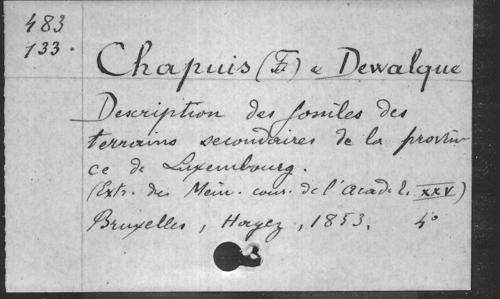 483
133.
Chapuis (F) & Dewalque
Description des fossiles des
terrains secondaires de la provin
ce de Luxembourg.
(Extr. des Mém. cour. de l'Acad. t. XXV)
Bruxelles, Hayez, 1853. 4°